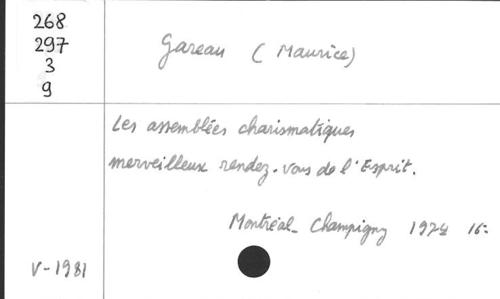 268
297
3
9
Gareau (Maurice)
Les assemblées charismatiques
merveilleux rendez-vous de l'Esprit.
Montréal- Champigny 1974 16-
V-1981